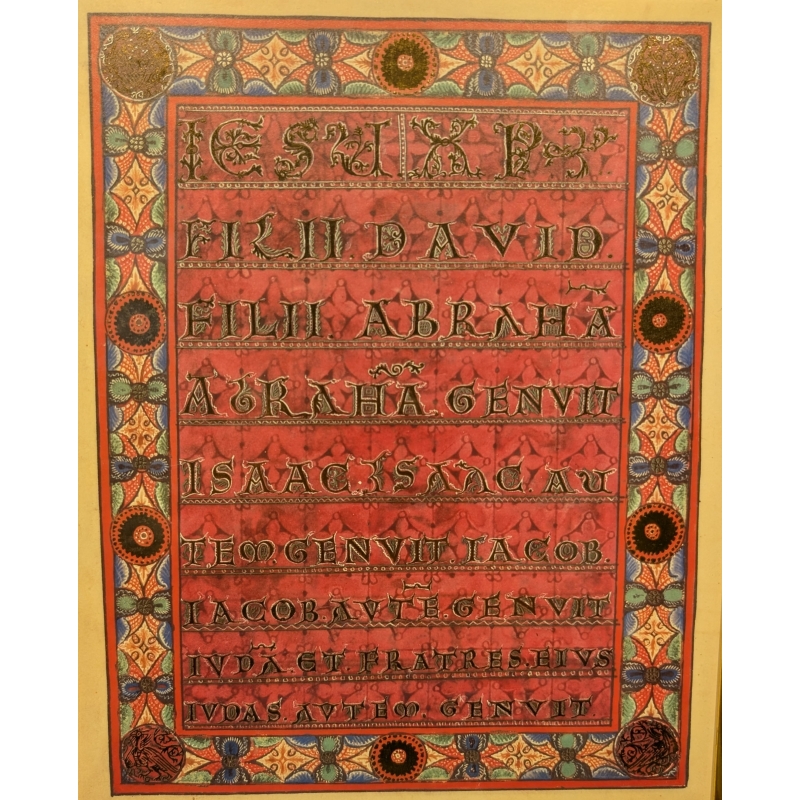 IESU XPI
FILII DAVID.
FILII ABRAHĀ
ABRAHĀ. GENVIT
ISAAC. ISAAC. AU
TEM. GENVIT. IACOB.
IACOB. AVTĒ. GENVIT
IVDĀ. ET. FRATRES. EIVS
IVDAS. AVTEM. GENVIT